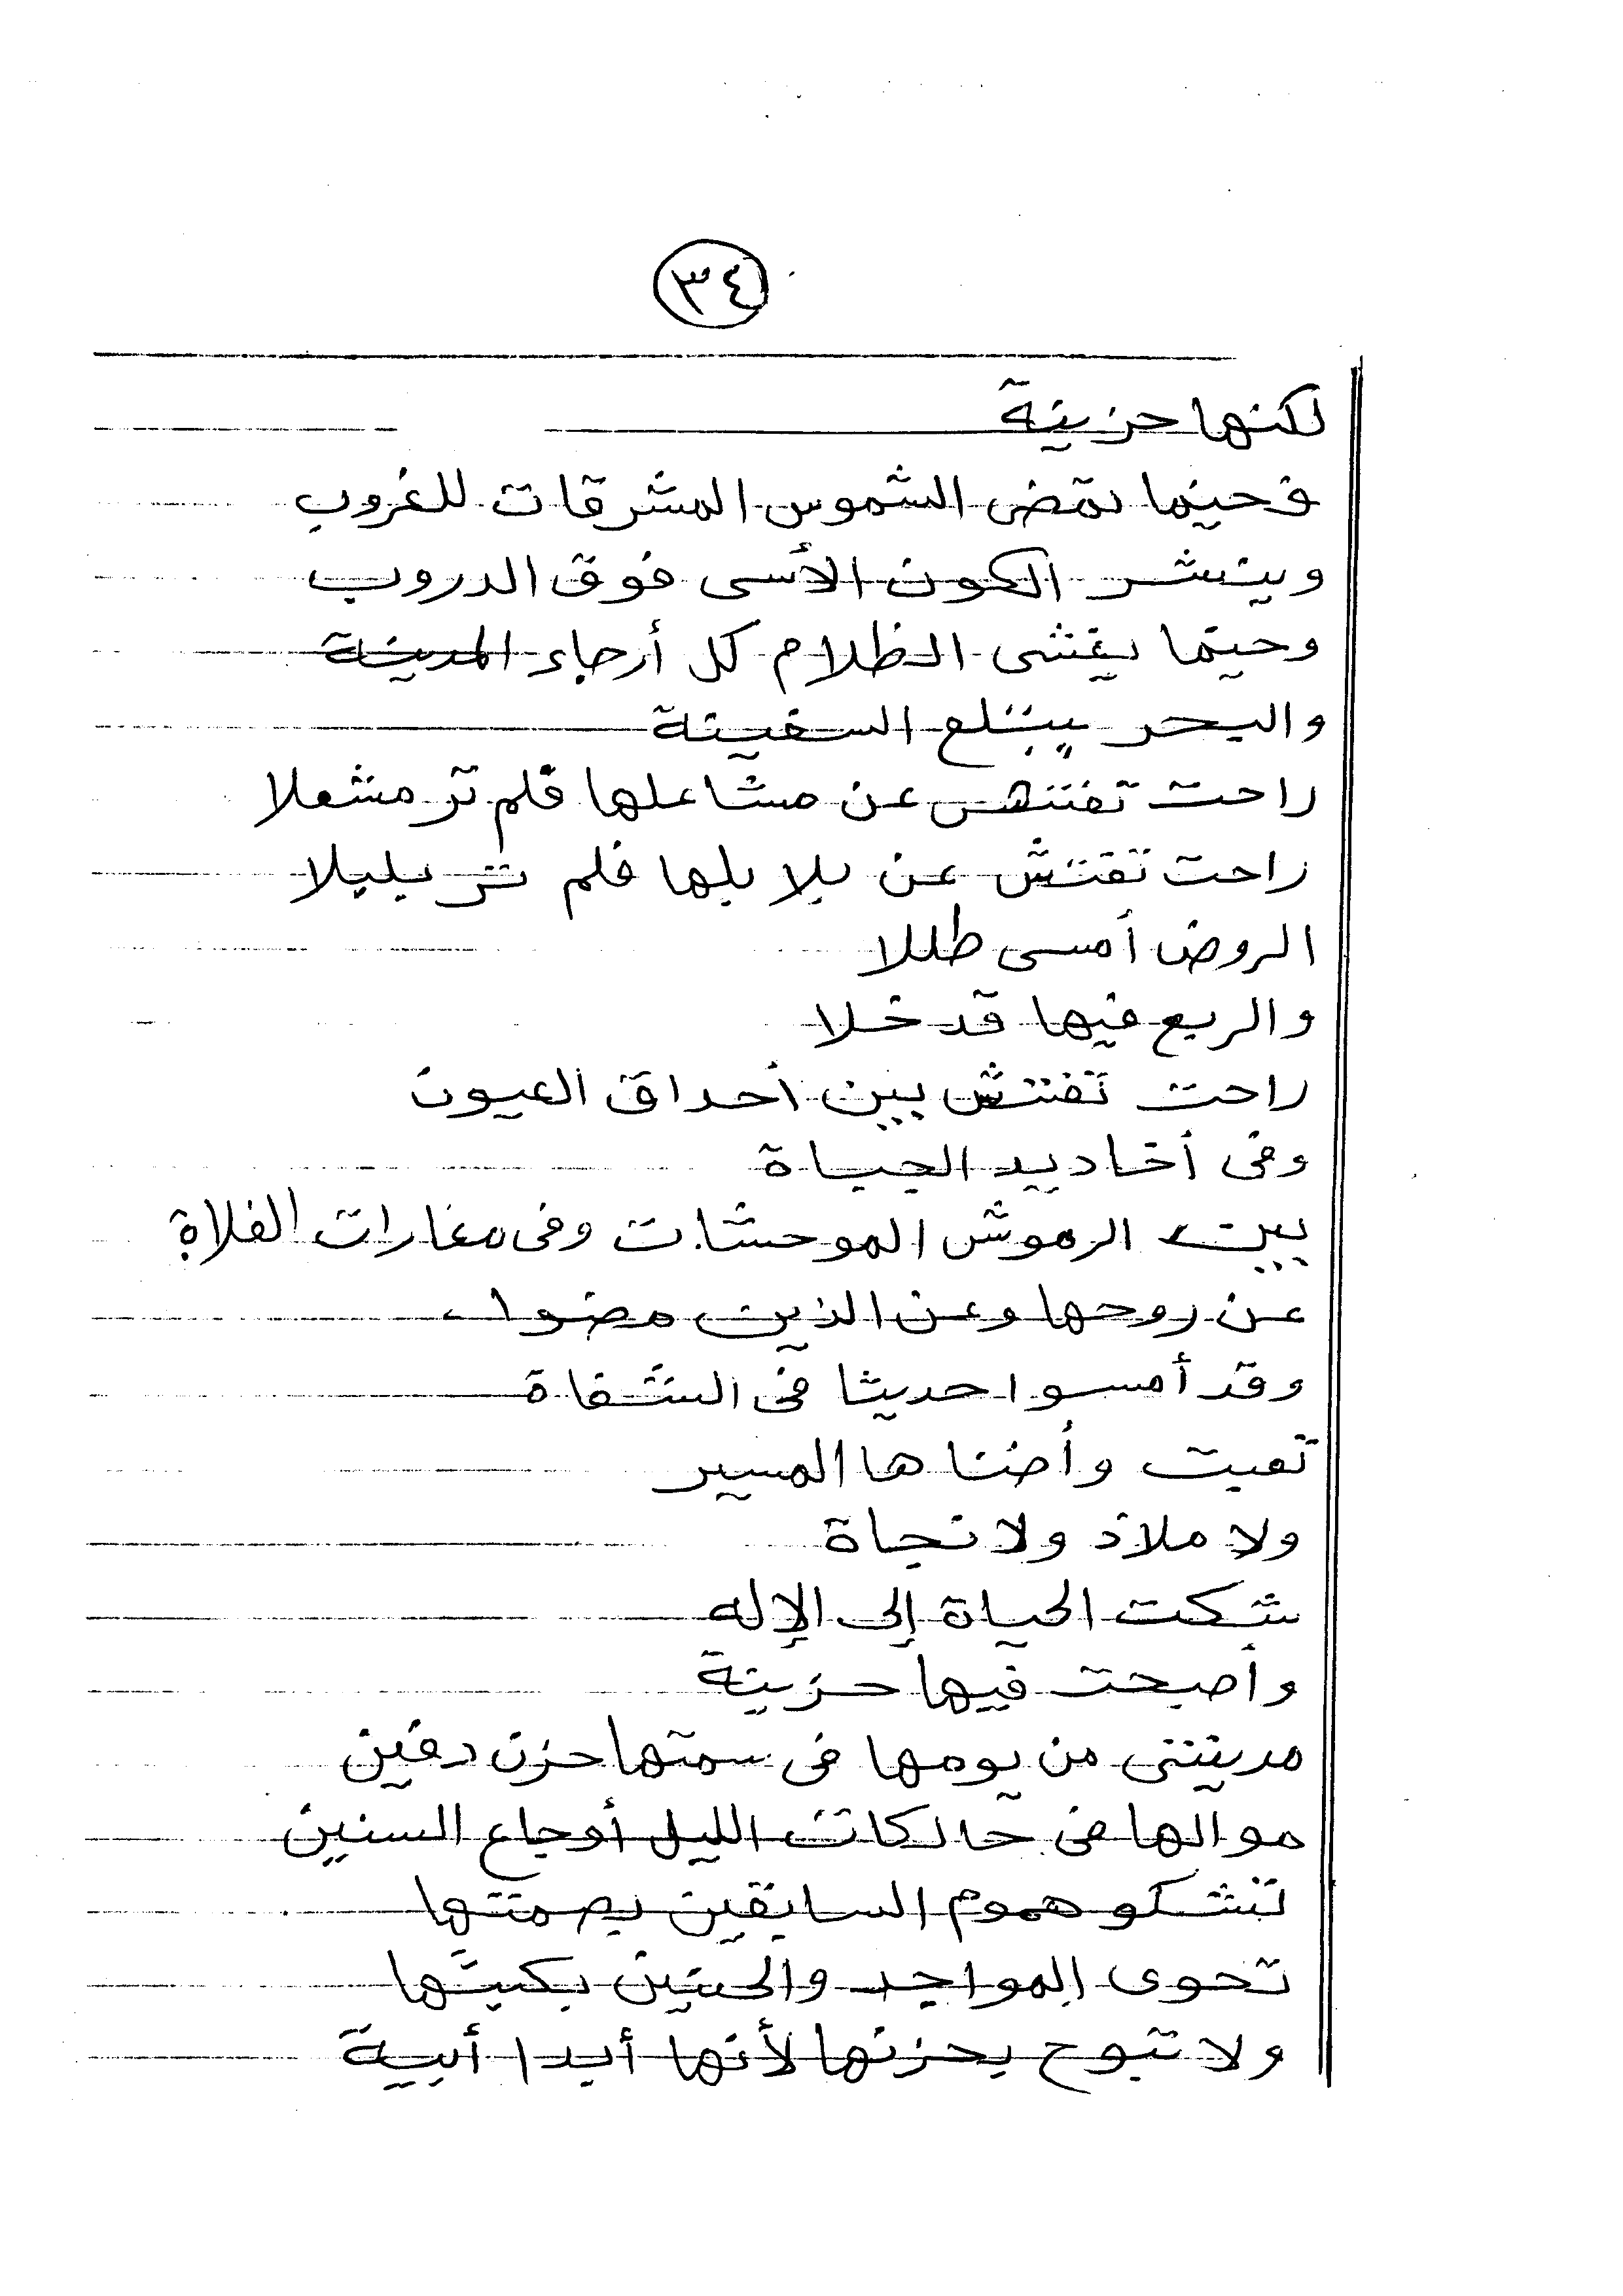 ٣٤
لكنها حزينة
فحينما تمضى الشموس المشرقات للغروب
وينشر الكون الأسى فوق الدروب
وحينما يغشى الظلام كل أرجاء المدينة
والبحر يبتلع السفينة
راحت تفتش عن مشاعلها فلم تر مشعلا
راحت تفتش عن بلابلها فلم تر بلبلا
الروض أمسى طللا
والربع فيها قد خلا
راحت تفتش بين أحداق العيون
وفى أخاديد الحياة
بين الرموش الموحشات وفى مغارات الفلاة
عن روحها وعن الذين مضوا
وقد أمسوا حديثا فى الشفاة
تعبت وأضناها المسير
ولا ملاذ ولا نجاة
شكت الحياة إلى الإله
وأصبحت فيها حزينة
مدينتى من يومها فى سمتها حزن دفين
موالها فى حالكات الليل أوجاع السنين
تشكو هموم السابقين بصمتها
تحوى المواجد والحنين بكبتها
ولا تبوح بحزنها لأنها أبدا أبية